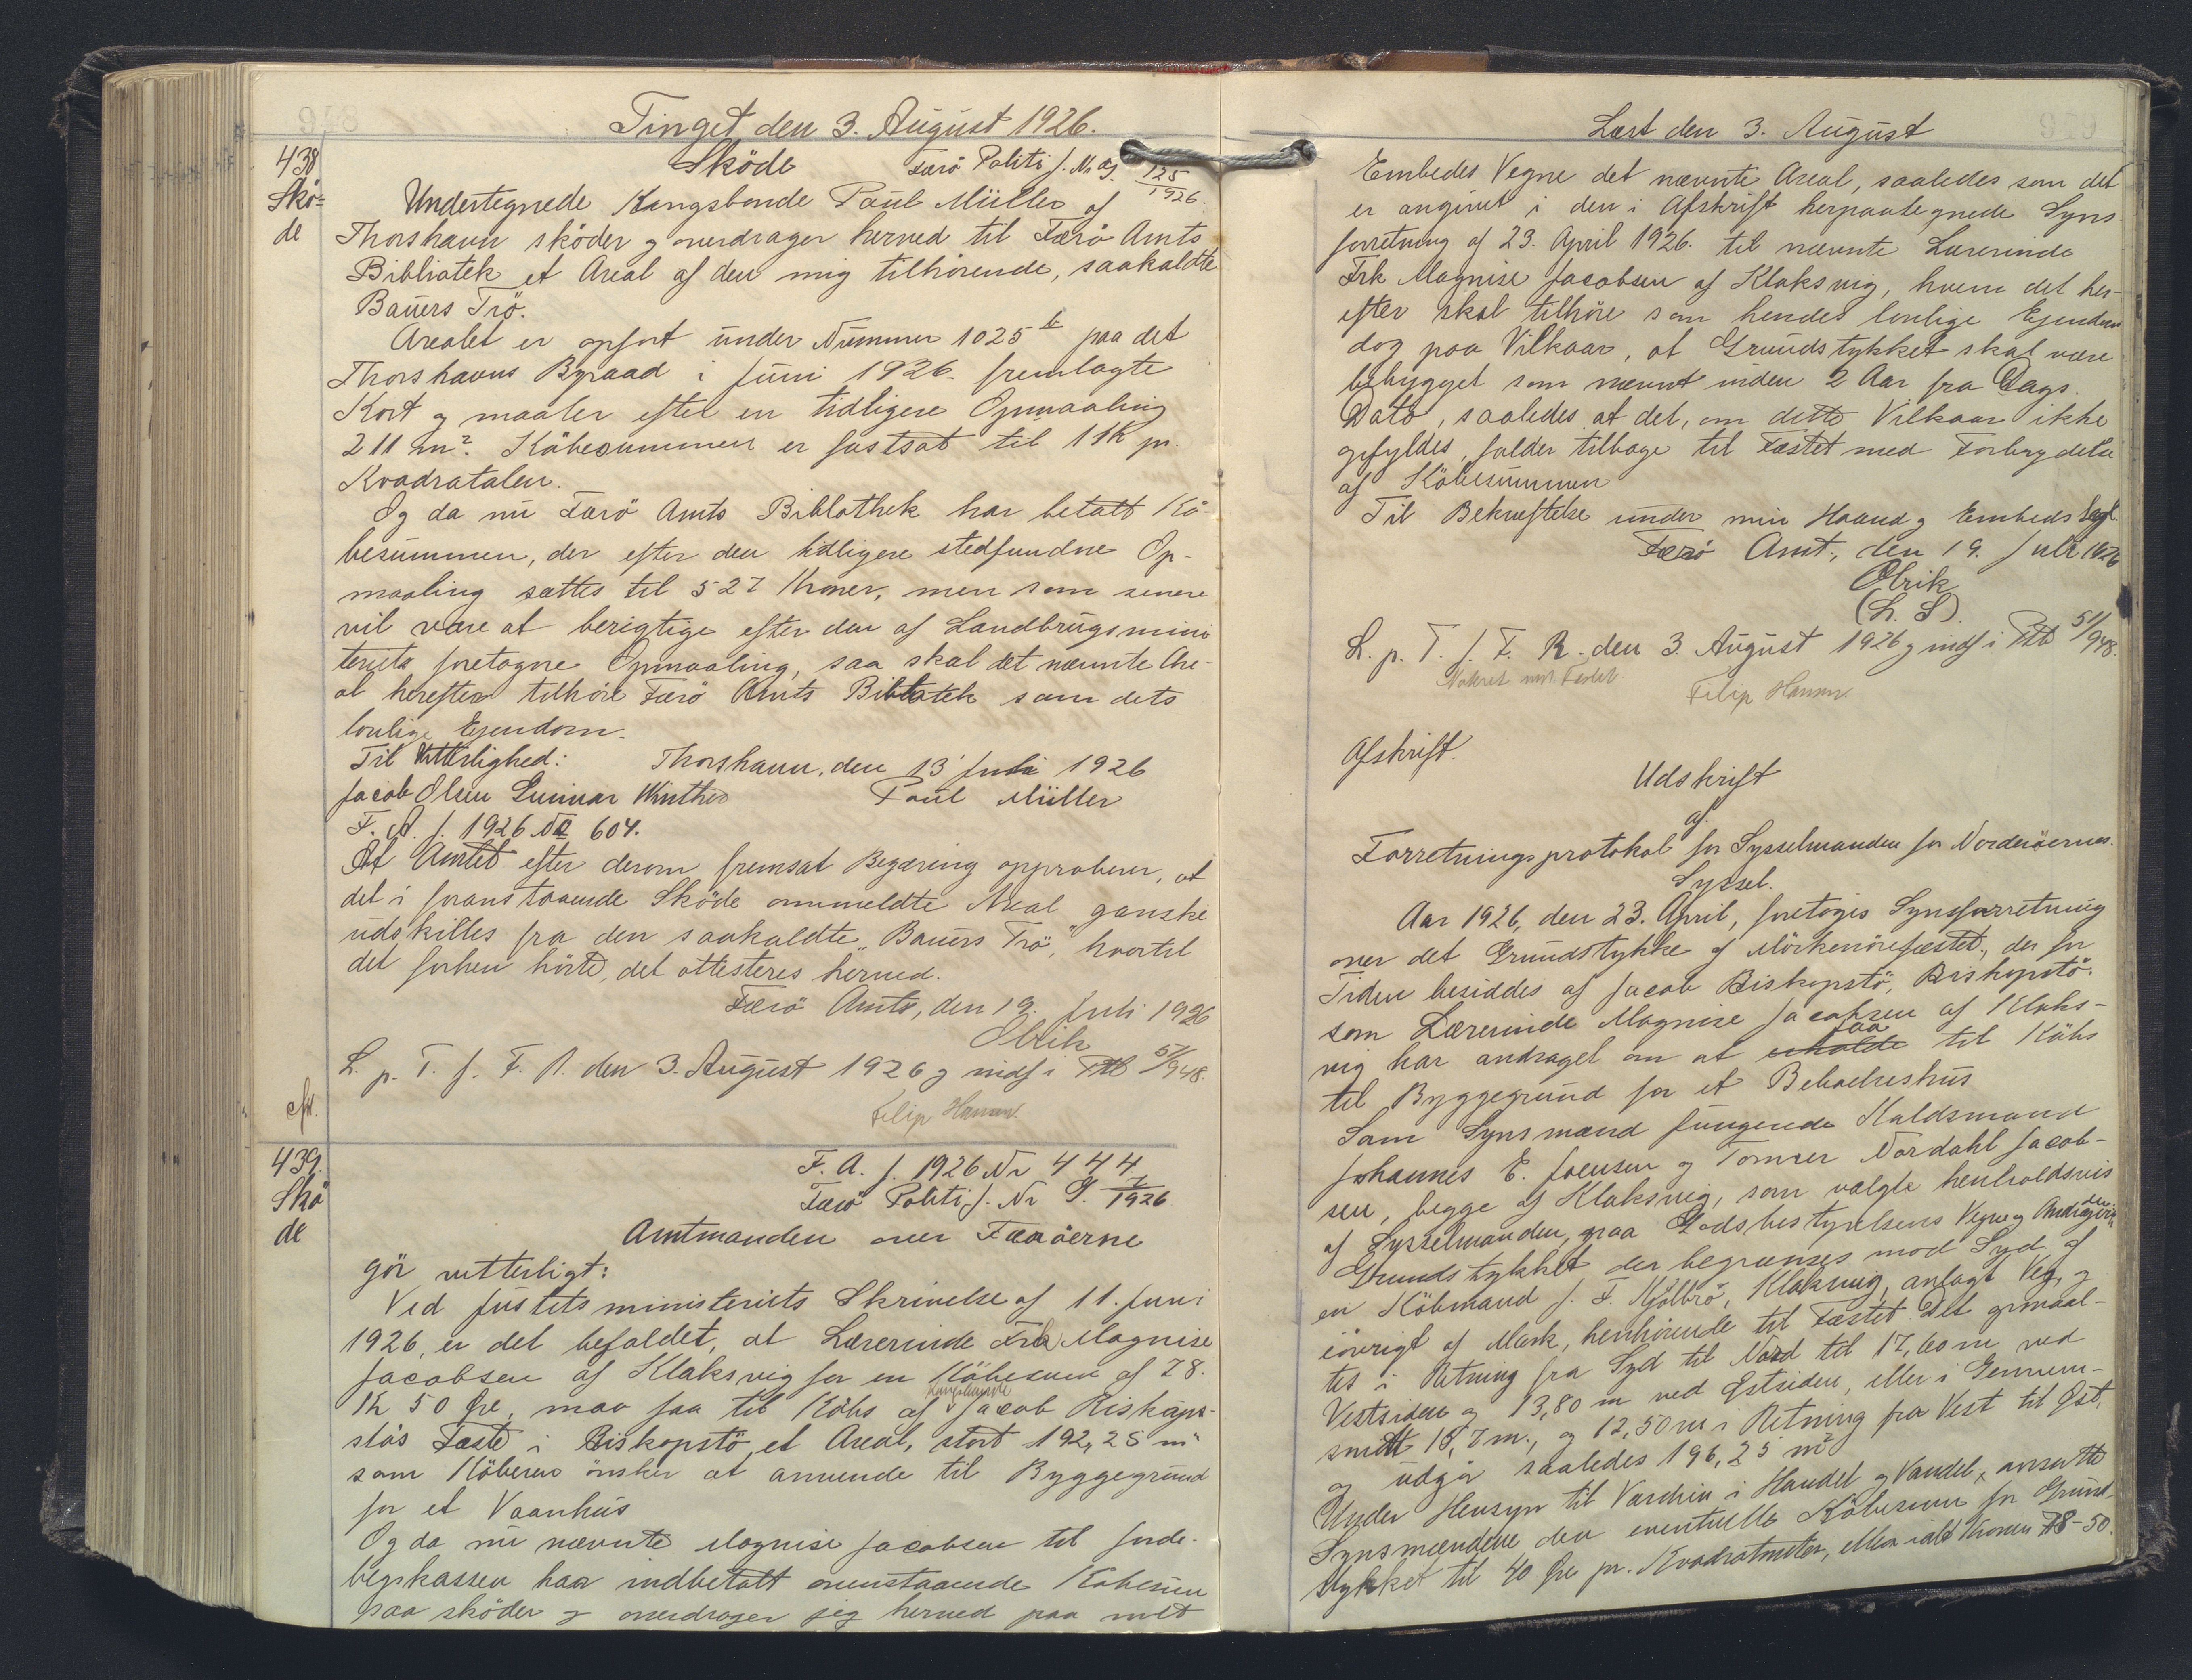 Tinget den 3. August 1926.
438
Skö=
de
Sköde Færö Politi J. Nr G. 125/1926.
Undertegnede Kongsbonde Poul Müller af
Thorshavn sköder og overdrager herved til Færö Amts
Bibliotek et Areal af den mig tilhörende, saakaldte
Bauers Trö.
Arealet er opfört under Nummer 1025 b paa det
Thorshavns Byraad i Juni 1926 fremlagte
Kort og maaler efter en tidligere Opmaaling
211 m². Köbesummen er fastsat til 1 K pr.
Kvadratalen.
Og da nu Færö Amts Bibliothek har betalt Kö-
besummen, der efter den tidligere stedfundne Op-
maaling sættes til 527 Kroner, men som senere
vil være at berigtige efter den af Landbrugsmini
teriets foretagne Opmaaling, saa skal det nævnte Are-
al herefter tilhöre Færö Amts Bibliotek som dets
lovlige Ejendom.
Til Vitterlighed: Thorshavn, den 13 Juli 1926
Jacob Olsen Gunnar Winther Poul Müller
F. A. J. 1926 No 604.
At Amtet efter derom fremsat Begæring approberer, at
det i foranstaaende Sköde ommeldte Areal ganske
udskilles fra den saakaldte "Bauers Trö", hvortil
det forhen hörte, det attesteres herved.
Færö Amt, den 19. Juli 1926
Olrik
L. p. T. f. F. R. den 3. August 1926 g indf i Ptb 51/948.
Filip Hansen
cfr.
439.
Skö
de
F. A. J. 1926 Nr 444
Færö Politi J. Nr G. 7/1926
Amtmanden over Færöerne
gör vitterligt:
Ved Justitsministeriets Skrivelse af 11. Juni
1926, er det befaldet, at Lærerinde Frk Magnise
Jacobsen af Klaksvig for en Köbesum af 78.
Kr 50 Øre, maa faa til Köbs af Kongsbonde Jacob Biskops-
stös Fæste i Biskopstö, et Areal, stort 192,25 m²
som Köberen önsker at anvende til Byggegrund
for et Vaanhus
Og da nu nævnte Magnise Jacobsen til Jorde-
bogskassen har indbetalt ovenstaaende Köbesum
saa sköder og overdrager jeg herved paa mit
Læst den 3. August
Embedes Vegne det nævnte Areal, saaledes som det
er angivet i den i Afskrift herpaategnede Syns
forretning af 23. April 1926. til nævnte Lærerinde
Frk Magnise Jacobsen af Klaksvig, hvem det her-
efter skal tilhöre som hendes lovlige Ejendom
dog paa Vilkaar, at Grundstykket skal være
bebygget som nævnt inden 2 Aar fra Dags.
Dato, saaledes at det, om dette Vilkaar ikke
opfyldes, falder tilbage til Fæstet med Forbrydelse
af Köbesummen
Til Bekræftelse under min Haand og Embeds Segl.
Færö Amt, den 19. Juli 1926
Olrik
(L. S).
L. p. T. f. F. R. den 3. August 1926 g indf i Ptb 51/948.
Noteret ved Fæstet
Filip Hansen
Afskrift.
Udskrift
af
Forretningsprotokol for Sysselmanden for Norderöernes.
Syssel.
Aar 1926, den 23. April, foretoges Synsforretning
over det Grundstykke af Mörkenörefæstet, der for
Tiden besiddes af Jacob Biskopstö, Biskopstö.
som Lærerinde Magnise Jacobsen af Klaks-
vig har andraget om at erholde faa til Köbs
til Byggegrund for et Beboelseshus
Som Synsmænd fungerede Kaldsmand
Johannes E. Joensen og Tömrer Nordahl Jacob-
sen, begge af Klaksvig, som valgte henholdsvis
af Sysselmanden, paa Godsbestyrelsens Vegne og Andragerinden
Grundstykket der begrænses mod Syd af
en Köbmand J. F. Kjölbro, Klaksvig, anlagt Vej, og
iövrigt af Mark, henhörende til Fæstet. Det opmaal-
tes i Retning fra Syd til Nord til 17,60 m ved
Vestsiden og 13,80 m ved Østsiden, eller i Gennem-
snitt 15,7 m., og 12,50 m i Retning fra Vest til Øst,
og udgör saaledes 196,25 m²
Under Hensyn til Værdien i Handel og Vandel, ansatte
Synsmændene den eventuelle Köbesum for Grund-
stykket til 40 Øre pr. Kvadratmeter, eller ialt Kroner 78-50.